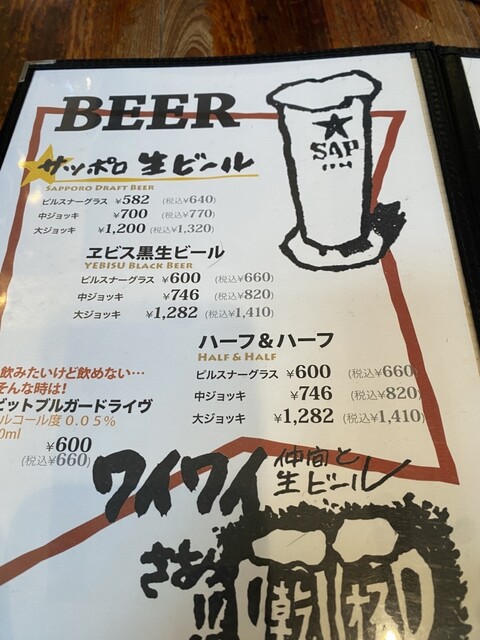 BEER
SAP
サッポロ 生ビール
SAPPORO DRAFT BEER
ピルスナーグラス ¥582 (税込¥640)
中ジョッキ ¥700 (税込¥770)
大ジョッキ ¥1,200 (税込¥1,320)
ヱビス黒生ビール
YEBISU BLACK BEER
ピルスナーグラス ¥600 (税込¥660)
中ジョッキ ¥746 (税込¥820)
大ジョッキ ¥1,282 (税込¥1,410)
ハーフ＆ハーフ
HALF & HALF
ピルスナーグラス ¥600 (税込¥660)
中ジョッキ ¥746 (税込¥820)
大ジョッキ ¥1,282 (税込¥1,410)
飲みたいけど飲めない…
そんな時は!
ビットブルガードライヴ
ルコール度 0.05%
0ml
¥600
(税込¥660)
ワイワイ 仲間と
生ビール
さあ
!! 乾杯